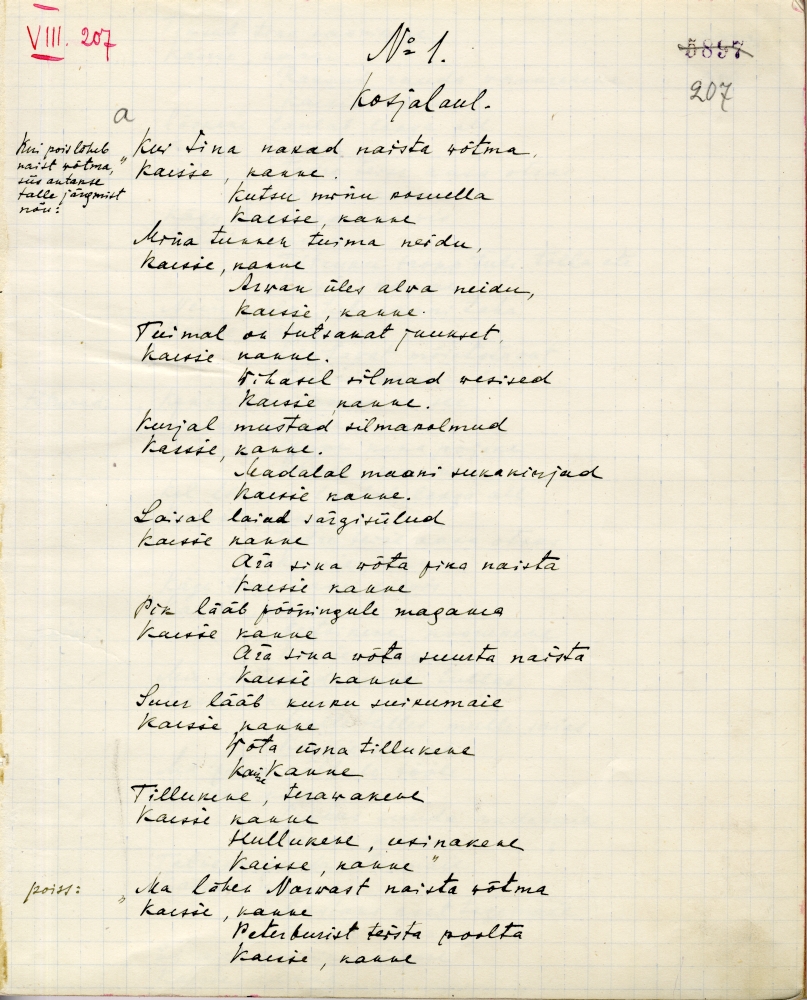 VIII. 207
No 1.
5857
207
Kosjalaul.
a
Kui pois läheb
naist wõtma,
siis antakse
talle järgmist
nõu:
„Kui sina nakad naista wõtma,
Kaisse, kanne.
Kutsu minu kosuella
Kaisse, kanne
Mina tunnen tuima neidu,
Kaisse, kanne
Arwan üles alwa neidu,
Kaisse, kanne.
Tuimal on tutsakat juukset,
Kaisse kanne.
Wihasel silmad wesised
Kaisse kanne.
Kurjal mustad silmakolmud
Kaisse, kanne.
Madalal maani sukakirjad
Kaisse kanne.
Laisal laiad särgisülud
Kaisse kanne
Ära sina wõta pika naista
Kaisse kanne
Pik lääb pööningule magama
Kaisse kanne
Ära sina wõta suurta naista
Kaisse kanne
Suur lääb kurku suikumaie
Kaisse kanne
Wõta üsna tillukene
Kaisse Kanne
Tillukene, terawakene
Kaisse kanne
Hullukene, usinakene
Kaisse, kanne"
poiss:
„Ma lähen Narwast naista wõtma
Kaisse, kanne
Peterburist teista poolta
Kaisse, kanne